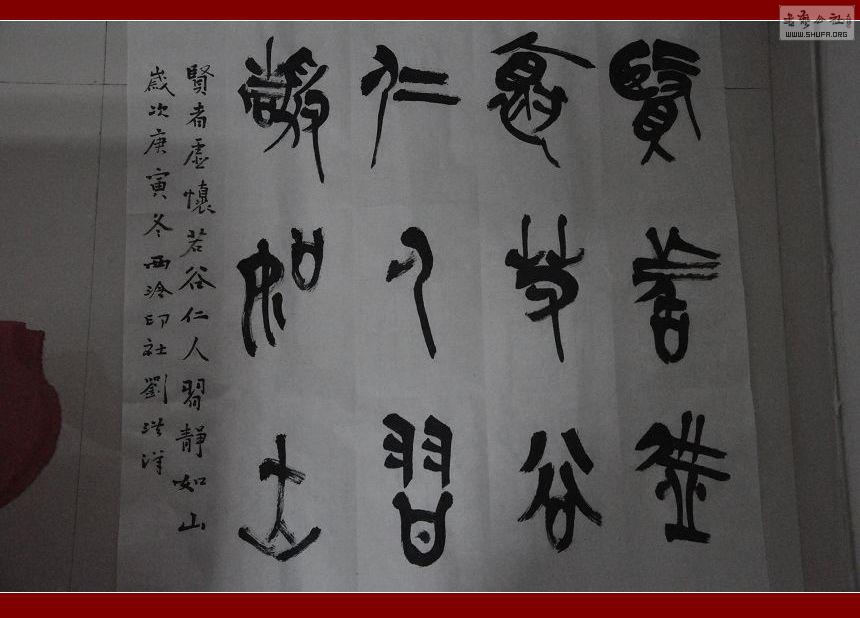 賢者虛
懷若谷
仁人習
靜如山
賢者虛懷若谷仁人習靜如山
歲次庚寅冬西泠印社劉洪洋
書藝公社
WWW.SHUFA.ORG